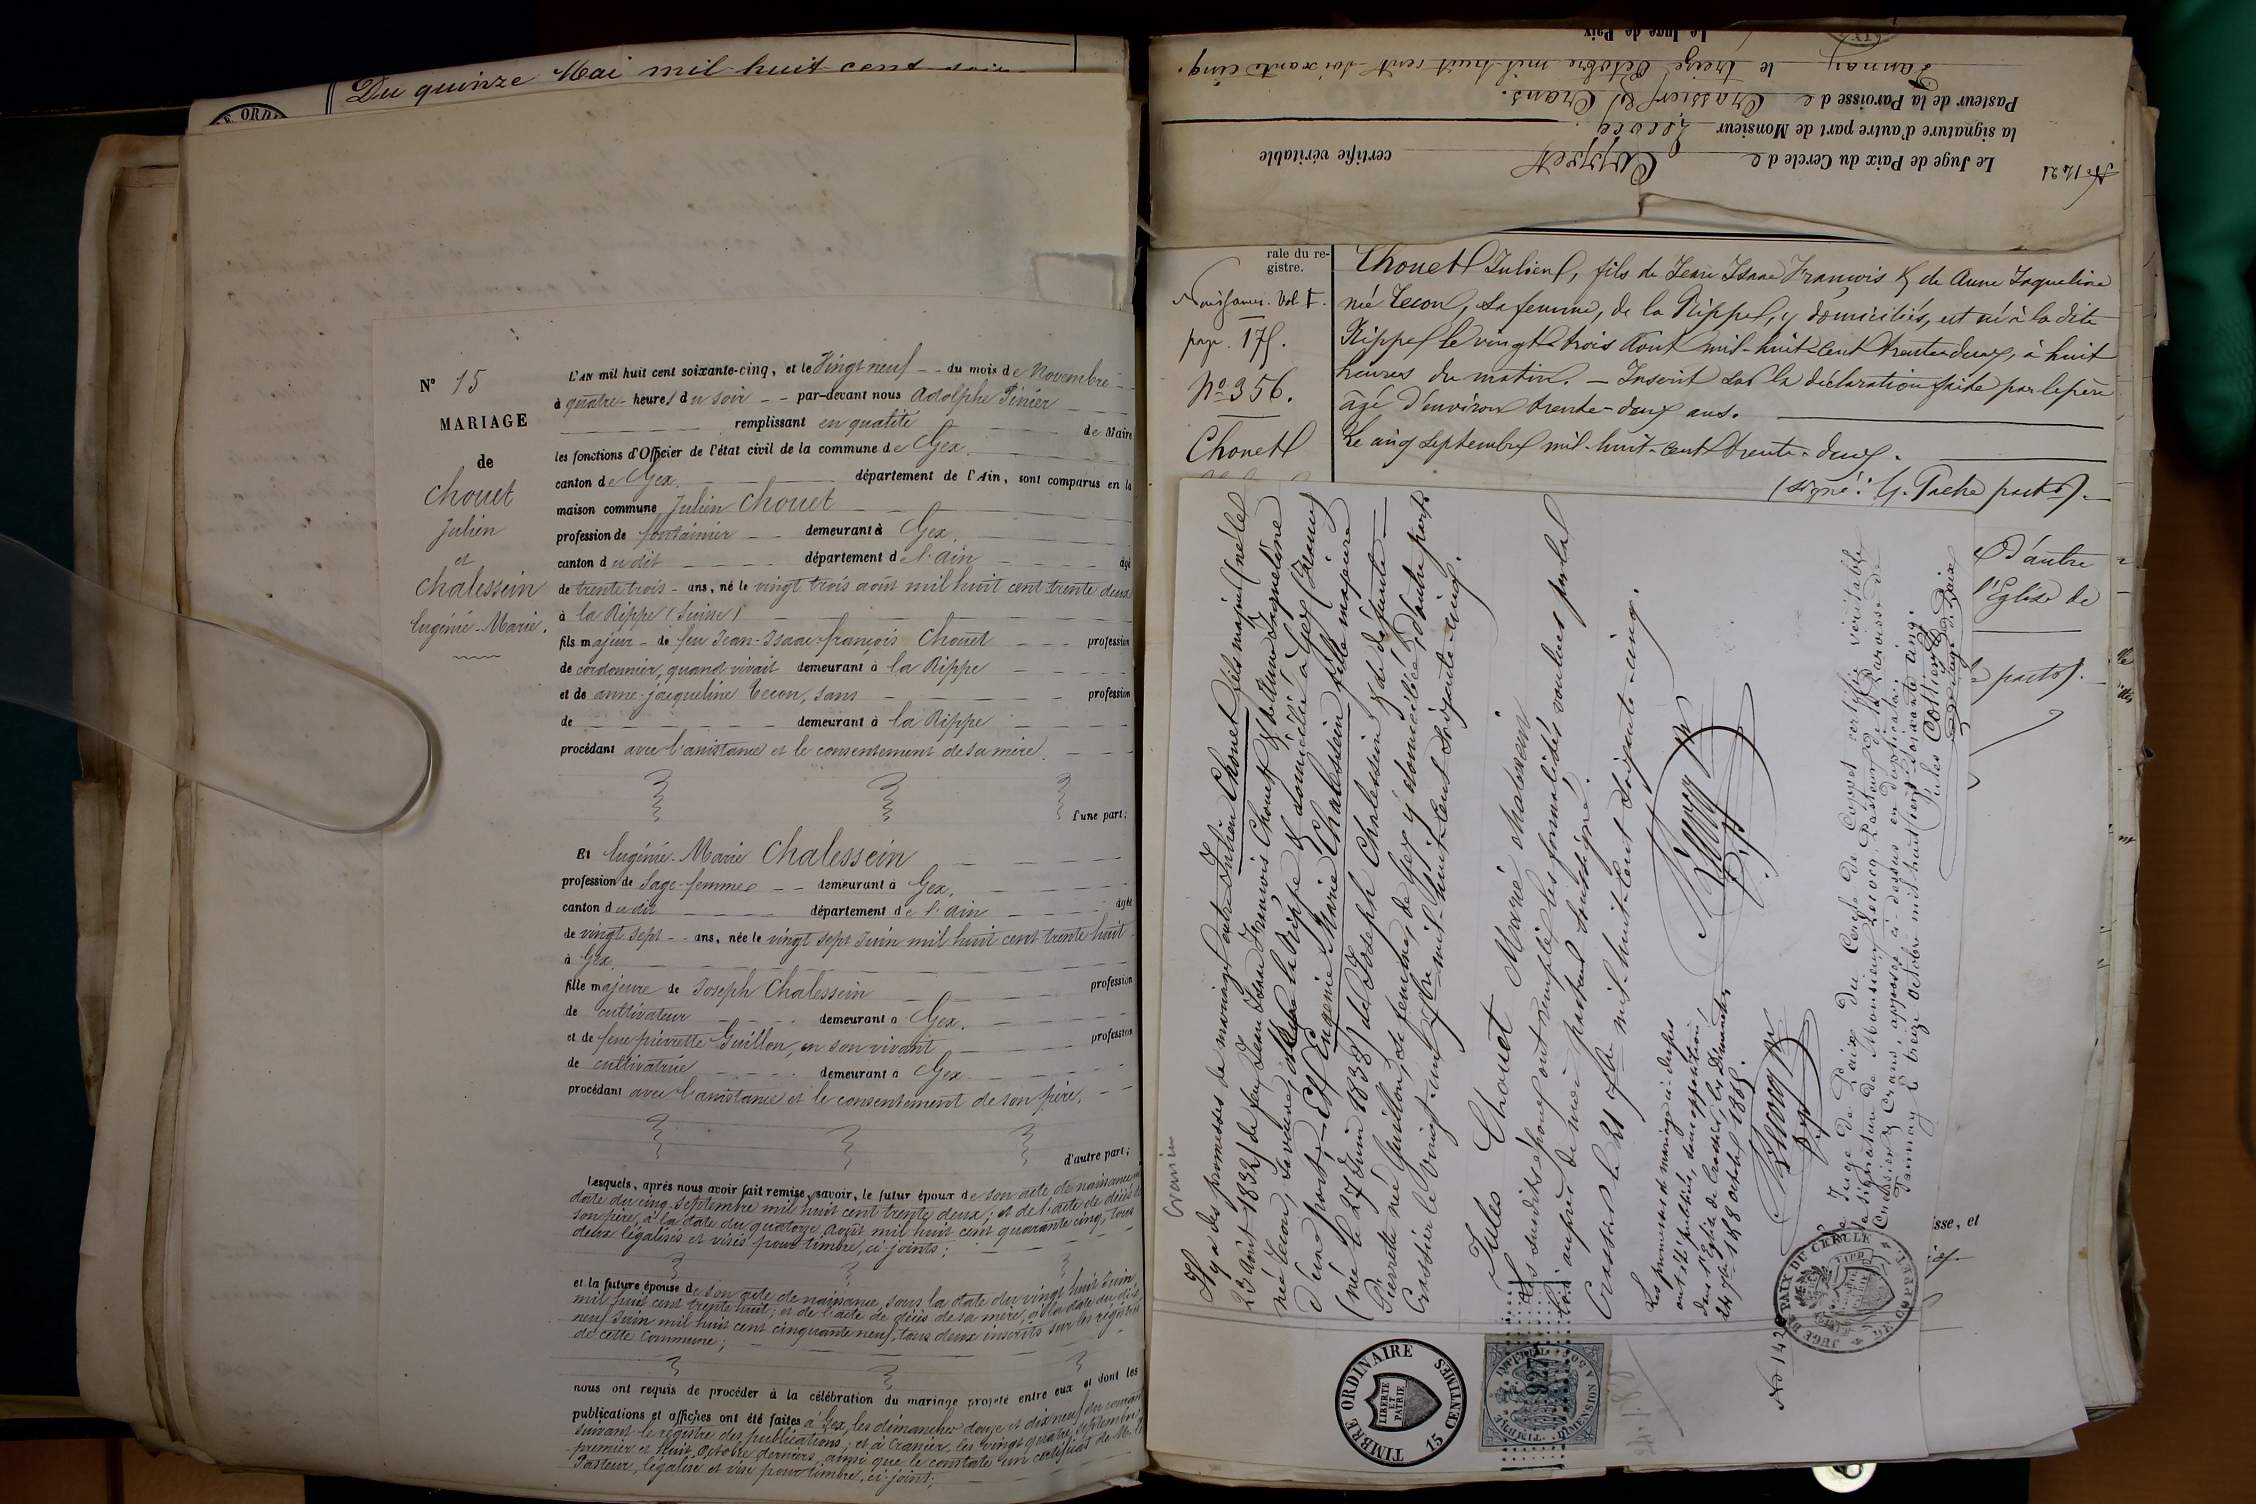 Du quinze Mai mil huit cent
E ORDI
N° 15
MARIAGE
de
Chouet
Julien
et
Chalessein
Eugénie-Marie.
L'AN mil huit cent soixante-cinq, et le Vingt neuf du mois de Novembre
à quatre heures du soir par-devant nous Adolphe Pinier
remplissant en qualité de Maire
les fonctions d'Officier de l'état civil de la commune de Gex.
canton de Gex. département de l'Ain, sont comparus en la
maison commune Julien Chouet
profession de fontainier demeurant à Gex.
canton dudit département de l'ain âgé
de trente trois ans, né le vingt trois août mil huit cent trente deux
à la Rippe (Suisse)
fils majeur de feu Jean-Isaac-françois Chouet profession
de cordonnier, quand vivait demeurant à la Rippe
et de anne-jacqueline Tecon, sans profession
de demeurant à la Rippe
procédant avec l'assistance et le consentement de sa mère.
d'une part;
Et Eugénie-Marie Chalessein
profession de Sage-femme demeurant à Gex.
canton dudit département de l'ain âgée
de vingt sept ans, née le vingt sept Juin mil huit cent trente huit
à Gex.
fille majeure de Joseph Chalessein profession
de cultivateur demeurant à Gex.
et de feue pierrette Guillon, en son vivant profession
de cultivatrice demeurant à Gex.
procédant avec l'assistance et le consentement de son père.
d'autre part;
Lesquels, après nous avoir fait remise, savoir, le futur époux de son acte de naissance
date du cinq septembre mil huit cent trente deux; et de l'acte de décès de
son père, à la date du quatorze août mil huit cent quarante cinq, tous
deux légalisés et visés pour timbre, ci-joints;
et la future épouse de son acte de naissance, sous la date du vingt huit Juin
mil huit cent trente huit; et de l'acte de décès de sa mère, à la date du dix
neuf Juin mil huit cent cinquante neuf, tous deux inscrits sur les registres
de cette Commune;
nous ont requis de procéder à la célébration du mariage projeté entre eux et dont les
publications et affiches ont été faites à Gex, les dimanches douze et dix neuf du courant
suivant le registre des publications; et à Crassier, les vingt quatre septembre,
premier et huit Octobre derniers, ainsi que le constate un certificat de Mr. le
Pasteur, légalisé et visé pour timbre, ci-joint;
No 1421
Le Juge de Paix du Cercle de Coppet certifie véritable
la signature d'autre part de Monsieur Lecocq
Pasteur de la Paroisse de Crassier & Crans.
Tannay le treize Octobre mil huit cent soixante cinq.
Le Juge de Paix
rale du re-
gistre.
Naissances. Vol I.
page. 175.
No 356.
Chouet
Chouet Julien, fils de Jean Isaac François & de Anne Jaqueline
née Tecon, sa femme, de la Rippe, y domiciliés, est né à la dite
Rippe le vingt-trois Août mil-huit-cent trente-deux, à huit
heures du matin. — Inscrit sur la déclaration faite par le père
âgé d'environ trente-deux ans.
Le cinq septembre mil-huit-cent trente-deux.
d'autre
l'Eglise de
isse, et
Crassier
Il y a des promesses de mariage entre Julien Chouet fils majeur (né le
23 Août 1832) de feu Jean Isaac François Chouet & de femme Jaqueline
née Tecon, sa veuve, de la Rippe & domicilié à Gex (France)
d'une part, — Et Eugenie Marie Chalessein fille majeure
(née le 27 Juin 1838) de Joseph Chalessein & de défunte
Pierrette née Guillon, sa femme, de Gex y domiciliée, d'autre part.
Crassier le vingt-un 7bre mil-huit-cent soixante-cinq.
Jules Chouet Marie chalessein
Les susdits époux ont rempli les formalités voulues par la
loi auprès de moi pasteur soussigné.
Crassier le 21 7bre mil huit-cent soixante-cinq.
Lecocq pr
Les promesses de mariage ci-dessus
ont été publiées, sans opposition,
dans l'Eglise de Crassier, les Dimanches
24 7bre 1 & 8 octobre 1865.
Lecocq pr
Le Juge de Paix du Cercle de Coppet certifie véritable
la signature de Monsieur Lecocq, Pasteur de la Paroisse de
Crassier & Crans, apposée ci-dessus en duplicata.
Tannay le treize Octobre mil huit cent soixante cinq.
Jules Cottier
Juge de Paix
No 1420
JUGE DE PAIX DU CERCLE DE COPPET
TIMBRE ORDINAIRE
LIBERTE
ET
PATRIE
15 CENTIMES
TIMBRE IMPERIAL
DIMENSION A 50c
927